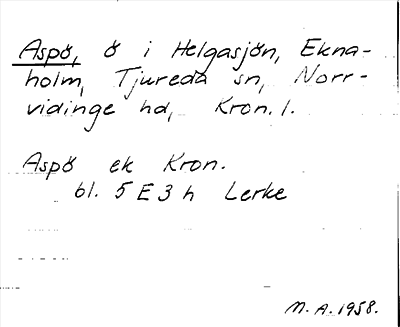 Aspö, ö i Helgasjön, Ekna-
holm, Tjureda sn, Norr-
vidinge hd, Kron. l.
Aspö ek Kron.
bl. 5 E 3 h Lerke
M. A. 1958.